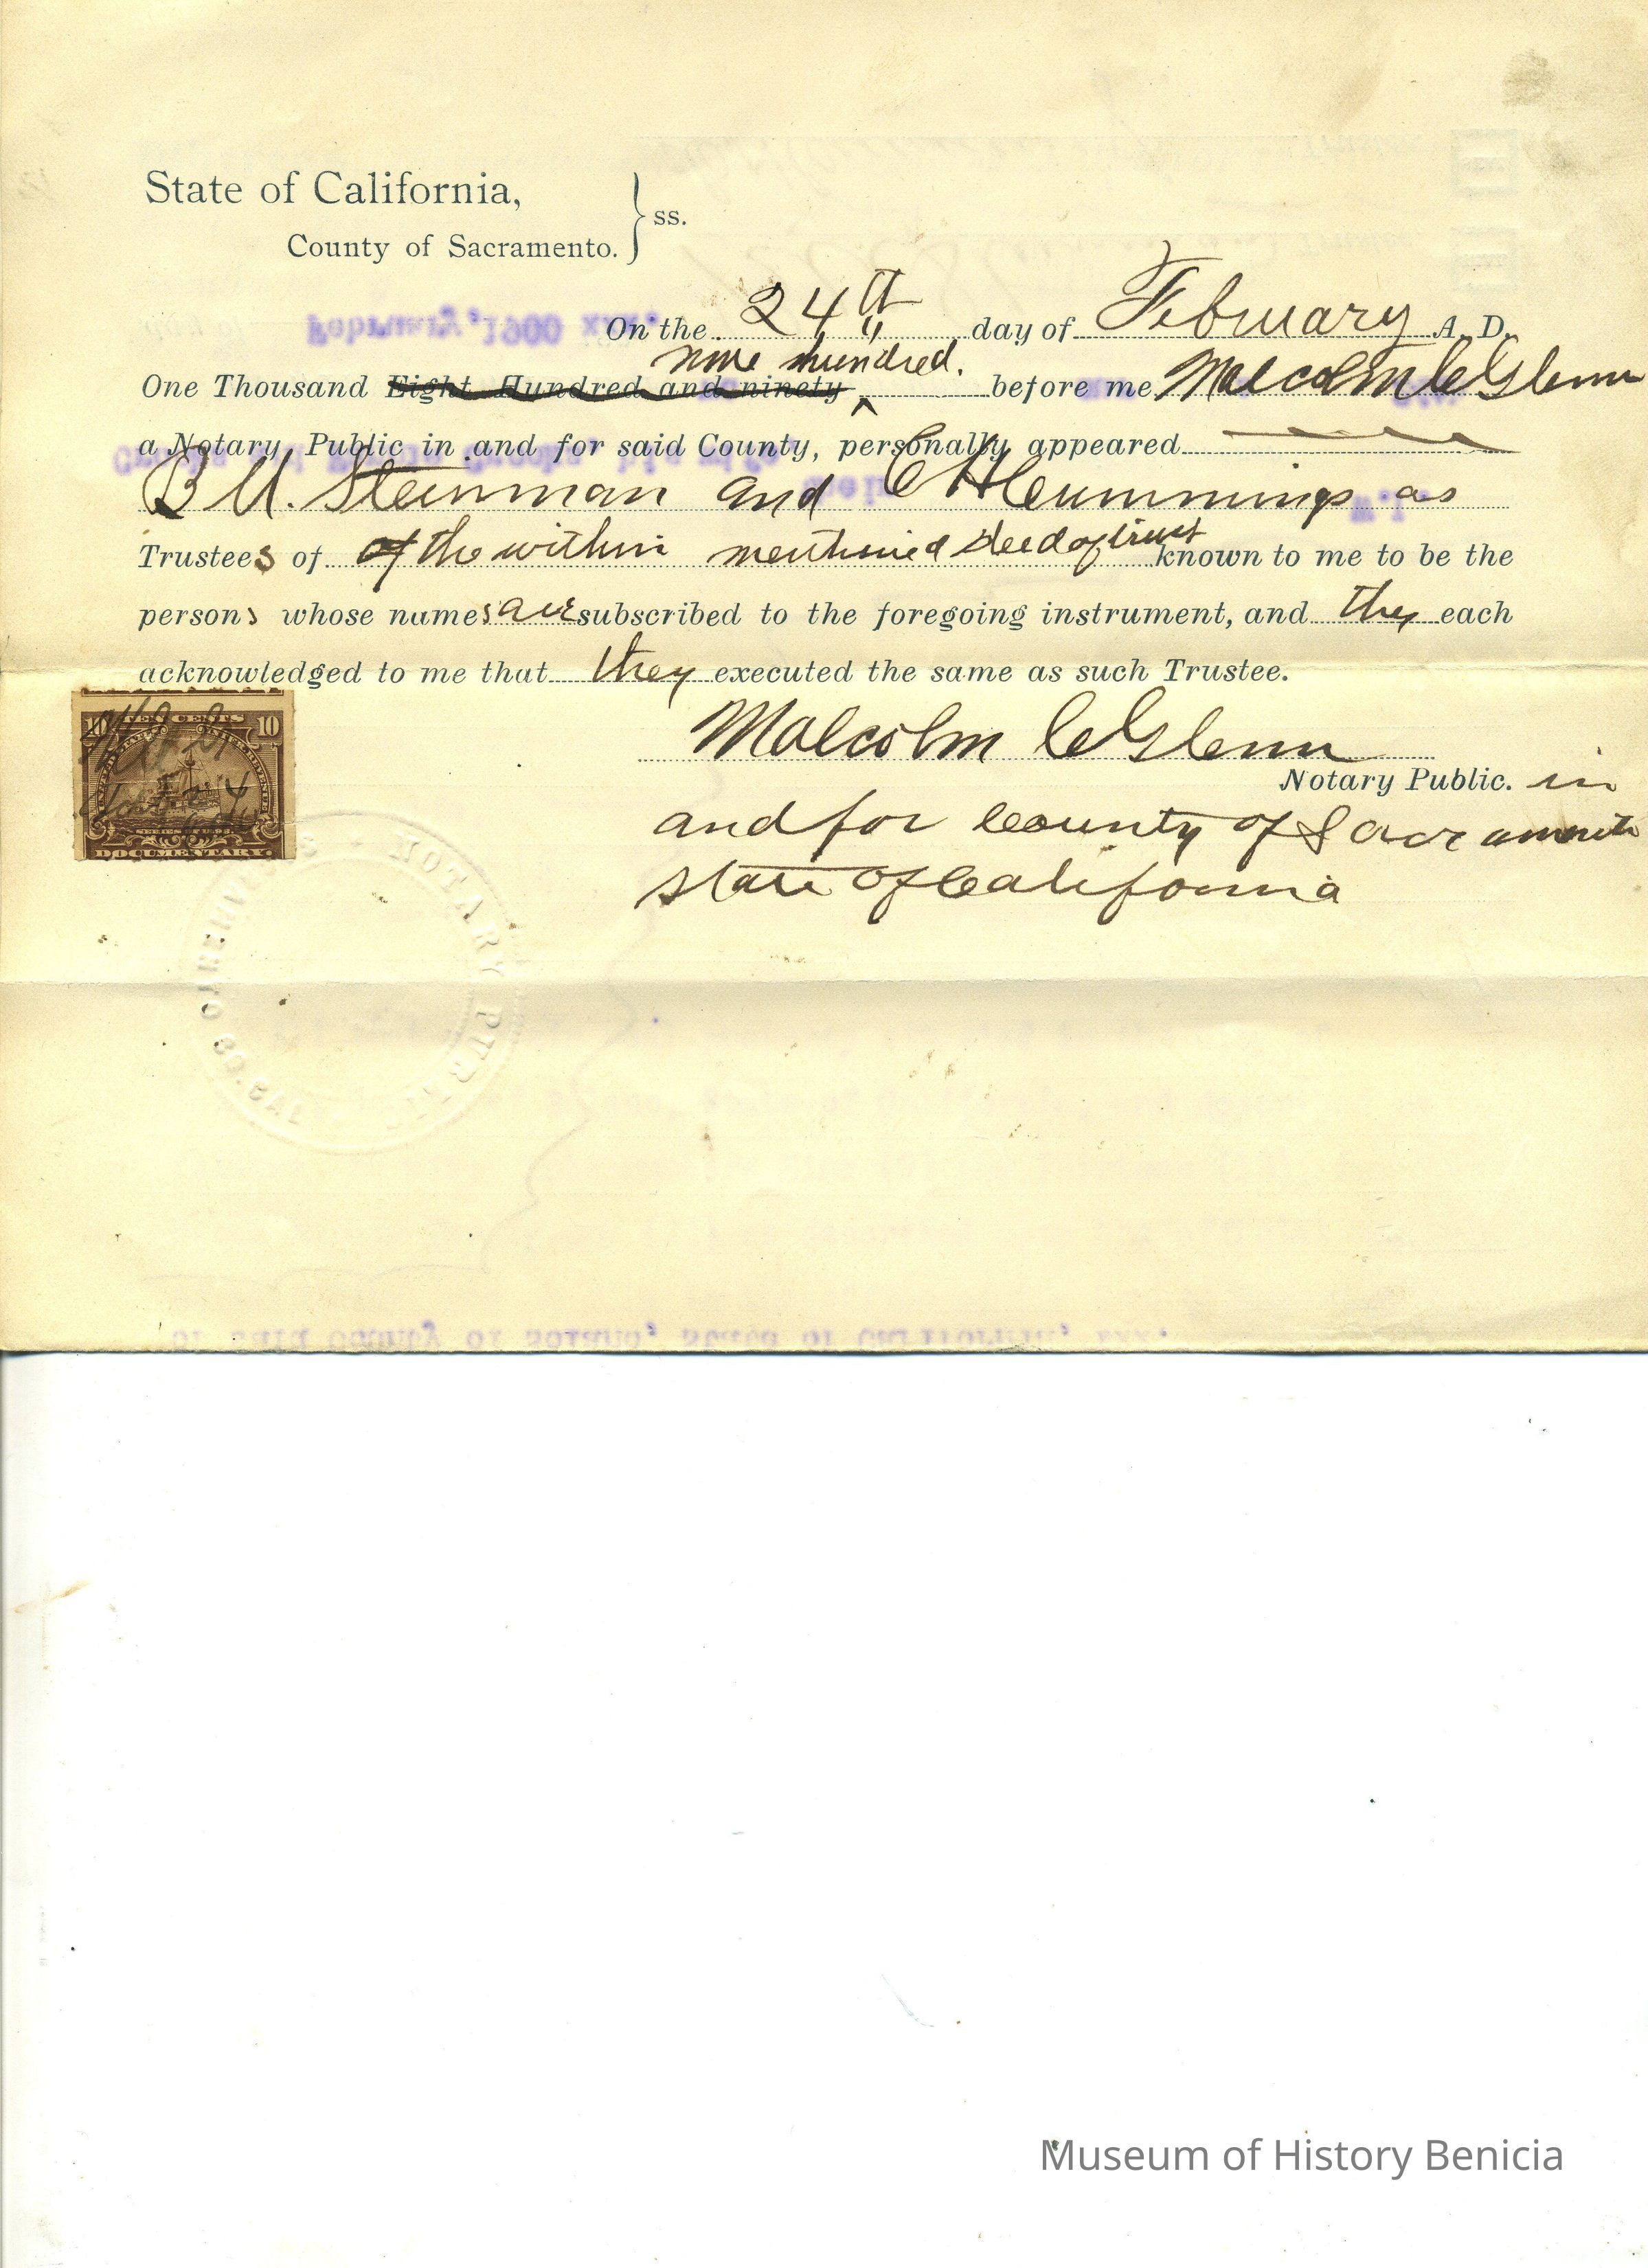 State of California,
County of Sacramento.
ss.
On the 24th day of February A. D.
nine hundred.
One Thousand Eight Hundred and ninety ^ before me Malcolm C Glenn
a Notary Public in and for said County, personally appeared
B U. Steinman and C H Cummings as
Trustees of of the within mentioned deed of trust known to me to be the
persons whose names are subscribed to the foregoing instrument, and they each
acknowledged to me that they executed the same as such Trustee.
Malcolm C Glenn
Notary Public. in
and for County of Sacramento
State of California
10 TEN CENTS 10
SERIES OF 1898
DOCUMENTARY
NOTARY PUBLIC
SACRAMENTO CO. CAL
February, 1900 xxx.
of said County of Solano, State of California, xxx.
Museum of History Benicia